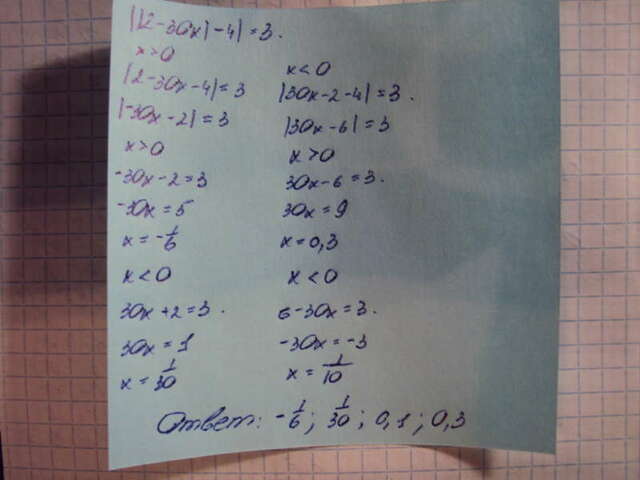 ||2-30x|-4|=3.
x>0
|2-30x-4|=3
|-30x-2|=3
x>0
-30x-2=3
-30x=5
x=-1/6
x<0
30x+2=3.
30x=1
x=1/30
x<0
|30x-2-4|=3.
|30x-6|=3
x>0
30x-6=3.
30x=9
x=0,3
x<0
6-30x=3.
-30x=-3
x=1/10
Ответ: -1/6; 1/30; 0,1; 0,3